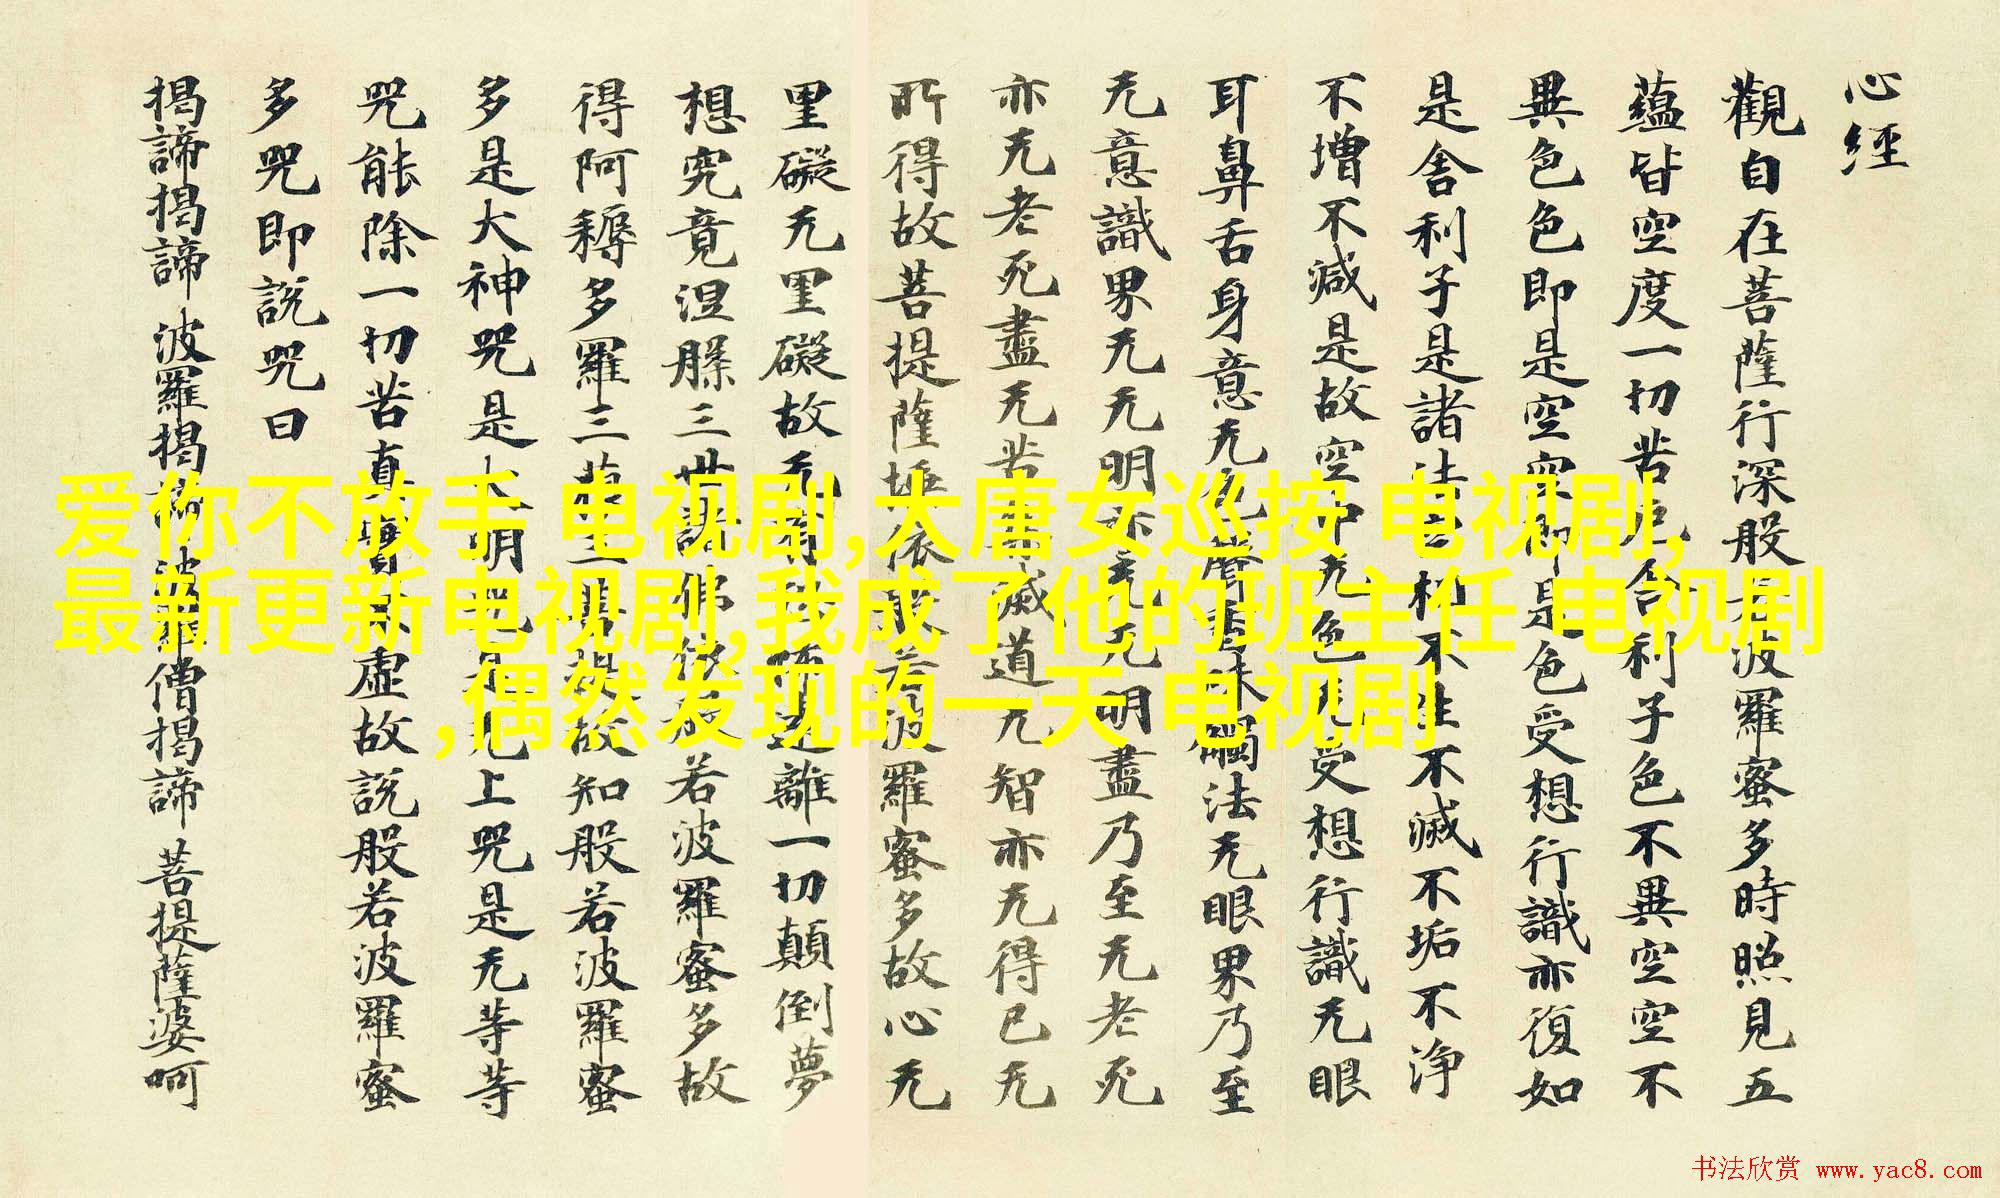 心經
觀自在菩薩行深般若波羅蜜多時照見五
蘊皆空度一切苦厄舍利子色不異空空不
異色色即是空空即是色受想行識亦復如
是舍利子是諸法空相不生不滅不垢不浄
不增不減是故空中无色无受想行識无眼
耳鼻舌身意无色聲香味觸法无眼界乃至
无意識界无无明亦无无明盡乃至无老死
亦无老死盡无苦集滅道无智亦无得已无
所得故菩提薩埵依般若波羅蜜多故心无
罣礙无罣礙故无有恐怖遠離一切顛倒夢
想究竟涅槃三世諸佛依般若波羅蜜多故
得阿耨多羅三藐三菩提故知般若波羅蜜
多是大神咒是大明咒是无上咒是无等等
咒能除一切苦真實不虛故說般若波羅蜜
多咒即說咒曰
揭諦揭諦 波羅揭諦 波羅僧揭諦 菩提薩婆呵
爱你不放手 电视剧,大唐女巡按 电视剧,
最新更新电视剧,我成了他的班主任 电视剧
,偶然发现的一天 电视剧
书法欣赏 www.yac8.com